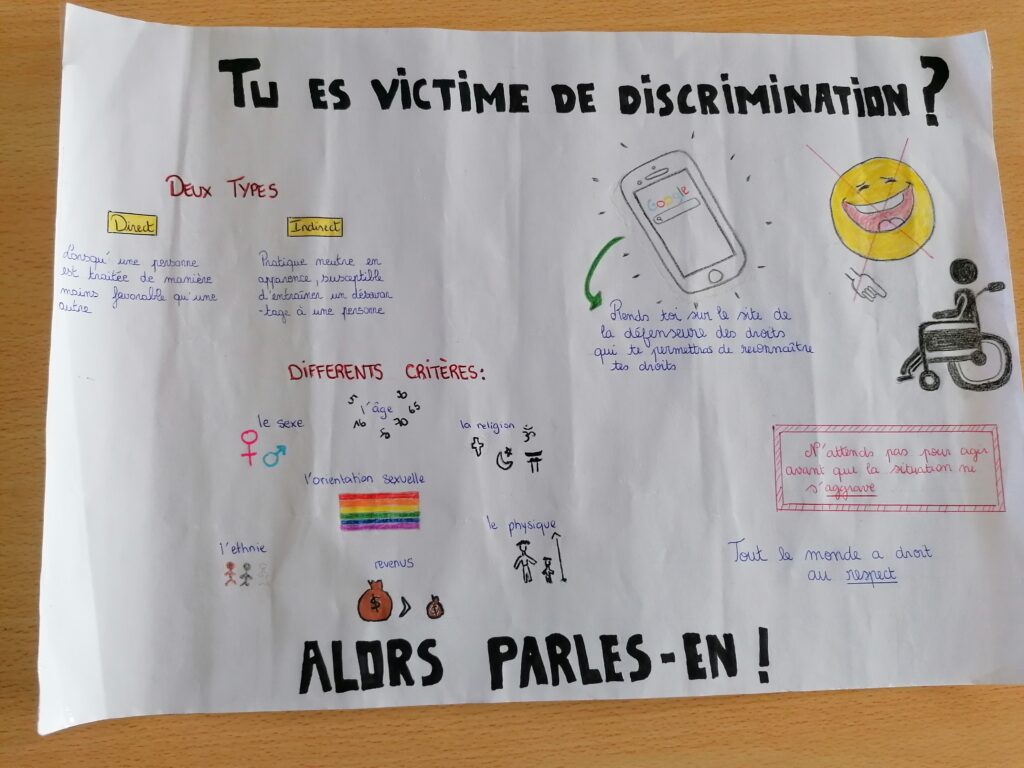 TU ES VICTIME DE DISCRIMINATION ?
DEUX TYPES
Direct
Lorsqu'une personne
est traitée de manière
moins favorable qu'une
autre
Indirect
Pratique neutre en
apparence, susceptible
d'entraîner un désavan
-tage à une personne
Google
Rends toi sur le site de
la défenseure des droits
qui te permettras de reconnaître
tes droits
DIFFERENTS CRITÈRES:
le sexe
l'âge
5
30
65
16
50
70
la religion
ॐ
l'orientation sexuelle
l'ethnie
revenus
$ > $
le physique
N'attends pas pour agir
avant que la situation ne
s'aggrave
Tout le monde a droit
au respect
ALORS PARLES-EN !